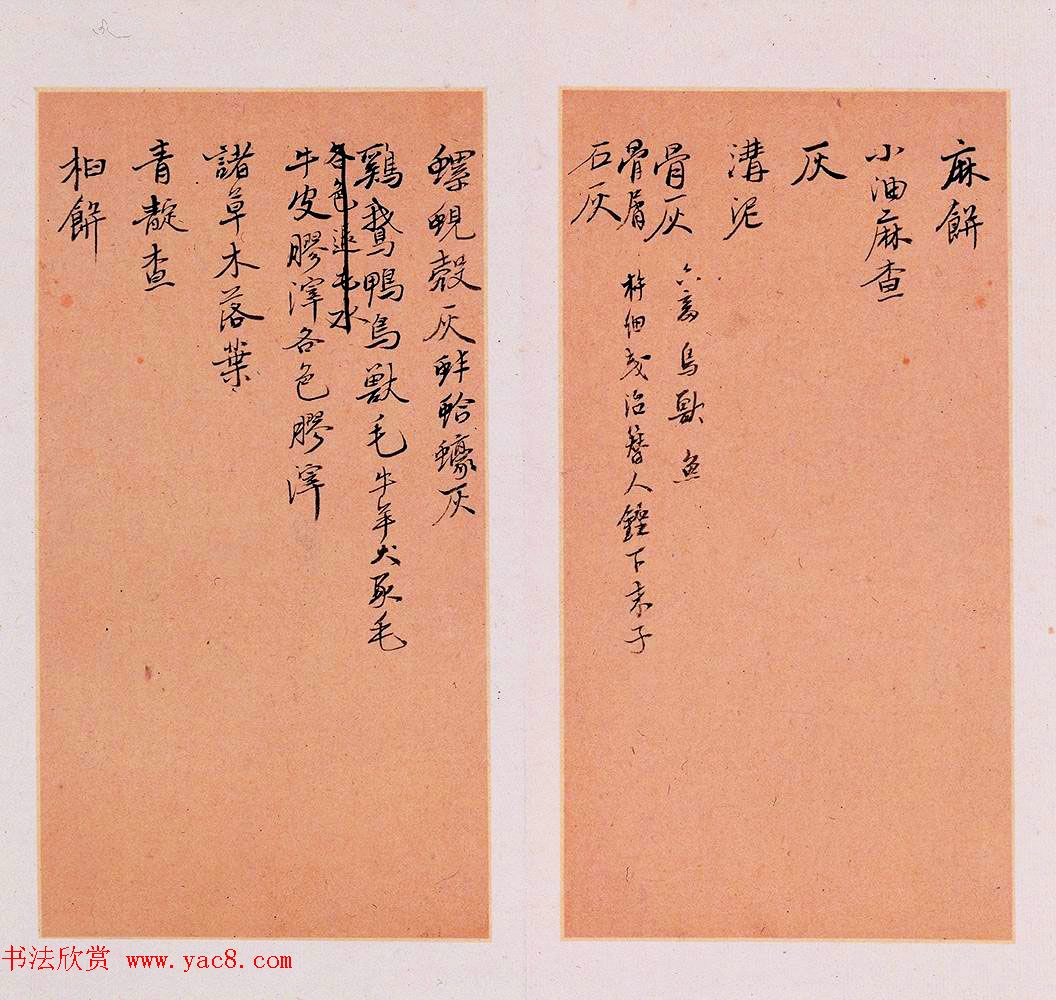 麻餅
小油麻查
灰
溝泥
骨灰 六畜鳥獸魚
骨屑 杵細或治簪人鏇下末子
石灰
螺蜆殼灰蚌蛤蠔灰
鷄鵞鴨鳥獸毛牛羊犬豕毛
各色退毛水
牛皮膠滓各色膠滓
諸草木落葉
青靛查
桕餅
书法欣赏 www.yac8.com